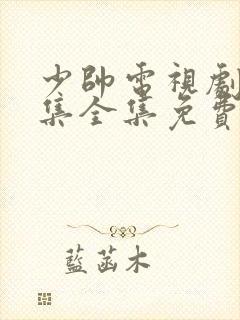 少帥電視劇
集全集免費
藍菡木